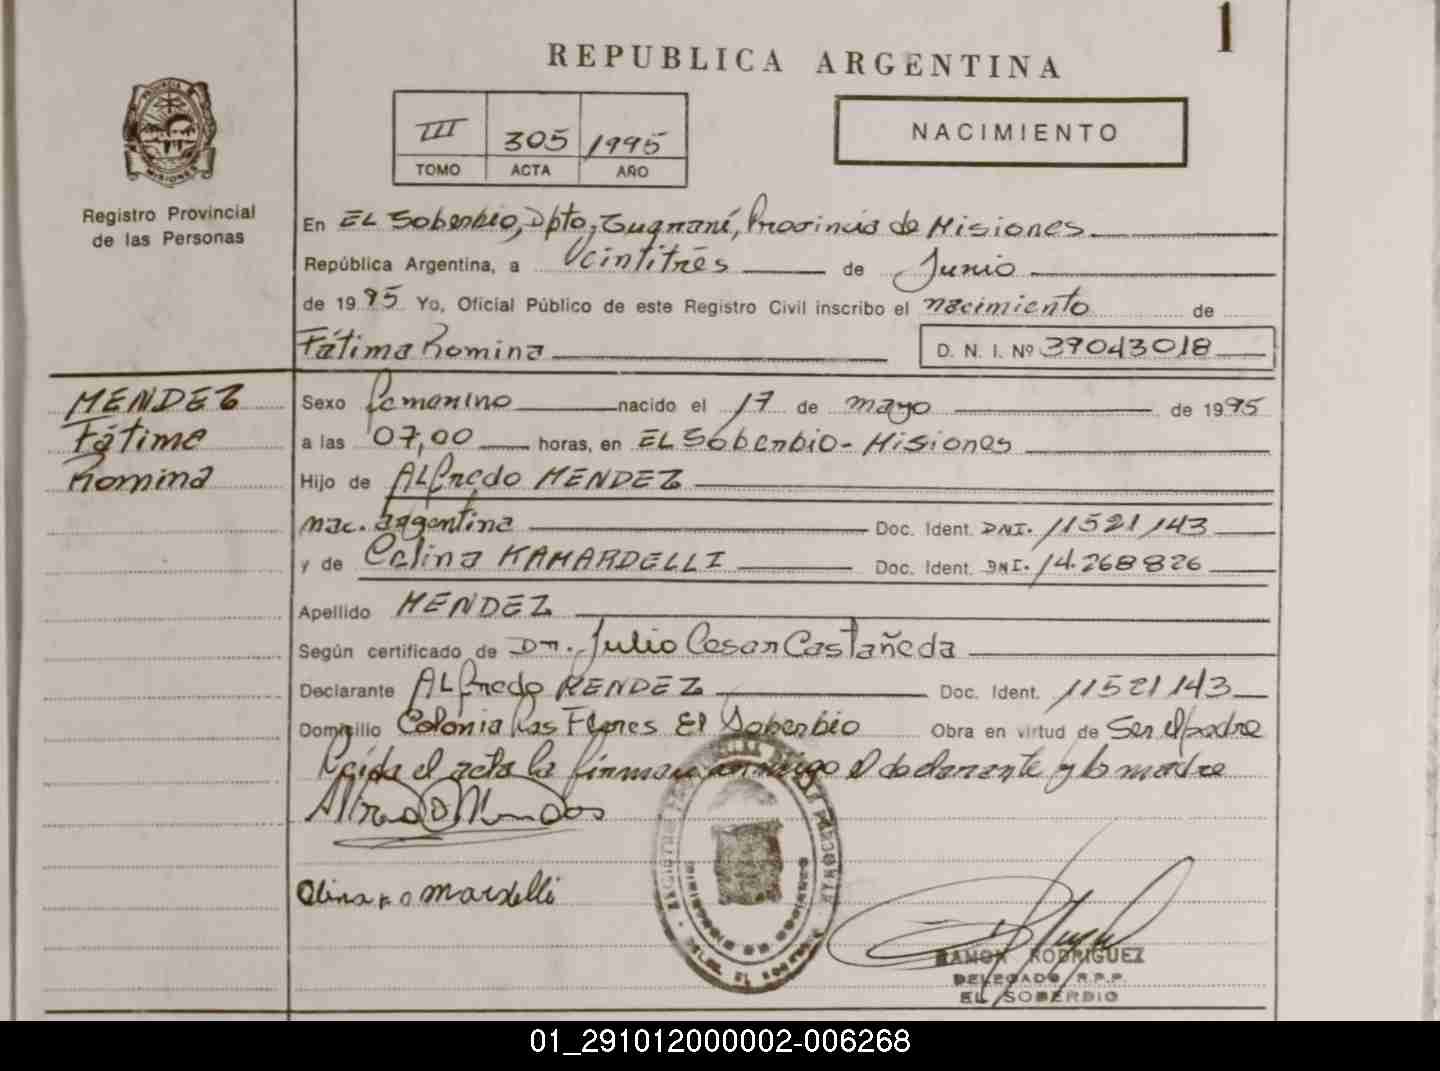 1
REPUBLICA ARGENTINA
PROVINCIA DE
MISIONES
Registro Provincial
de las Personas
III 305 1995
TOMO ACTA AÑO
NACIMIENTO
En EL Soberbio, Dpto, Guaraní, Provincia de Misiones
República Argentina, a Veintitrés de Junio
de 1995 Yo, Oficial Público de este Registro Civil inscribo el nacimiento de
Fátima Romina D. N. I. Nº 39043018
MENDEZ
Fátima
Romina
Sexo femenino nacido el 17 de mayo de 1995
a las 07,00 horas, en EL Soberbio - Misiones
Hijo de ALfredo MENDEZ
nac. argentina Doc. Ident. DNI. 11521143
y de Celina KAMARDELLI Doc. Ident. DNI. 14.268826
Apellido MENDEZ
Según certificado de Dr. Julio Cesar Castañeda
Declarante ALfredo MENDEZ Doc. Ident. 11521143
Domicilio Colonia Las Flores El Soberbio Obra en virtud de Ser el padre
Leída el acta la firman conmigo el declarante y la madre
RAMON RODRIGUEZ
DELEGADO R.P.P.
EL SOBERBIO
01_291012000002-006268